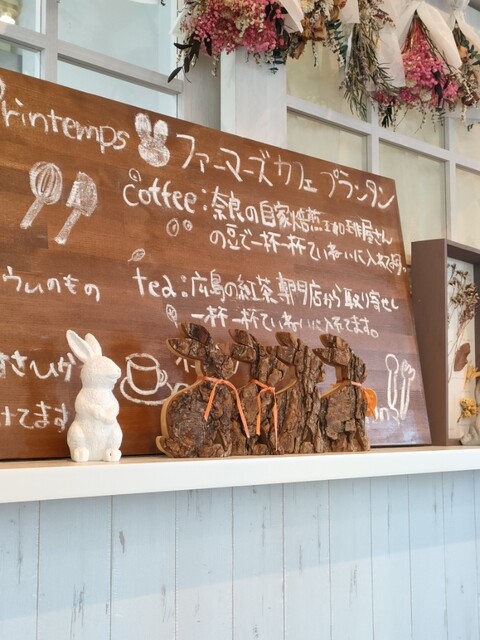 Printemps ファーマーズカフェ プランタン
coffee:奈良の自家焙煎工房工作屋さん
の豆で一杯一杯ていねいに入れて
ウムのもの
tea:広島の紅茶専門店から取り寄せし
一杯一杯ていねいに入れてます。
けてます